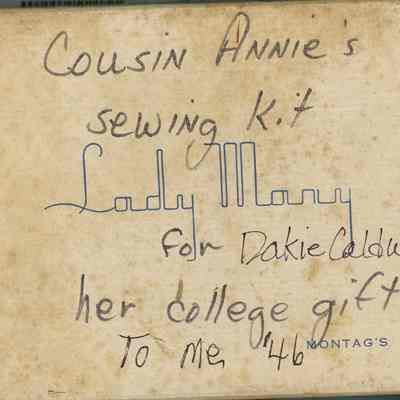 Cousin Annie's
sewing Kit
Lady Mary
for Dakie
her college gift
To me, '46
MONTAG'S